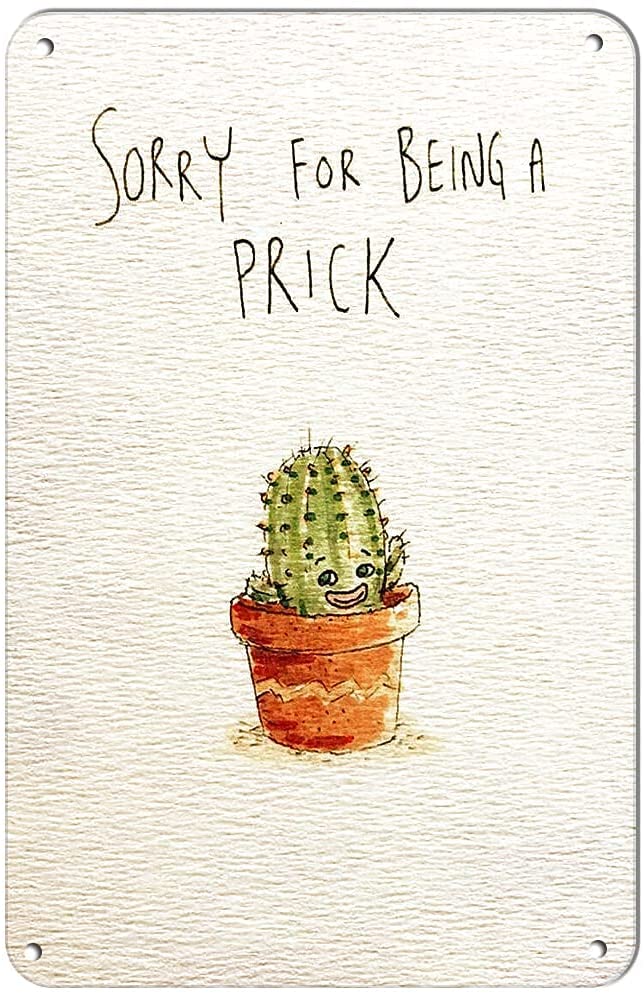 SORRY FOR BEING A
PRICK